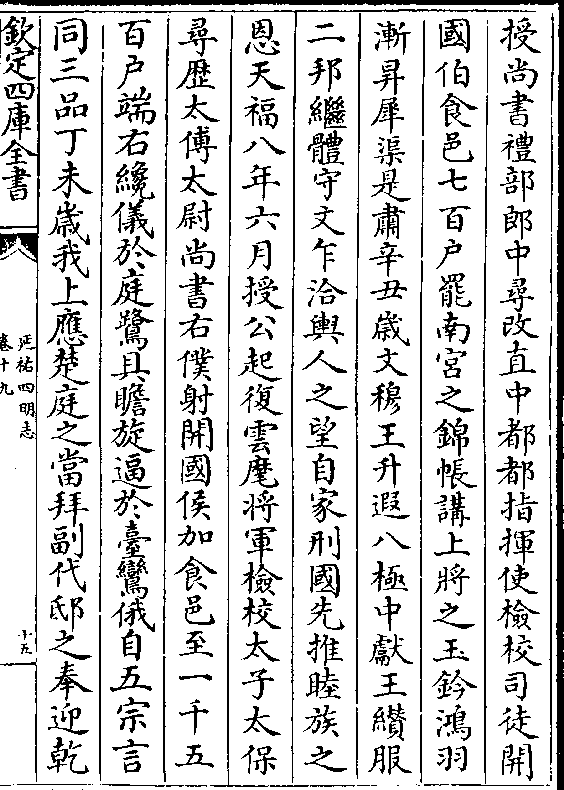 授尚書禮部郎中尋改直中都都指揮使檢校司徒開
國伯食邑七百户罷南宮之錦帳講上將之玉鈐鴻羽
漸昇犀渠是肅辛丑歲文穆王升遐八極中獻王纉服
二邦繼體守文乍洽輿人之望自家刑國先推睦族之
恩天福八年六月授公起復雲麾將軍檢校太子太保
尋歴太傅太尉尚書右僕射開國侯加食邑至一千五
百户端右纔儀於庭鷺具瞻旋逼於臺鸞俄自五宗言
同三品丁未歲我上應楚庭之當拜副代邸之奉迎乾
欽定四庫全書
延祐四明志
卷十九
十五